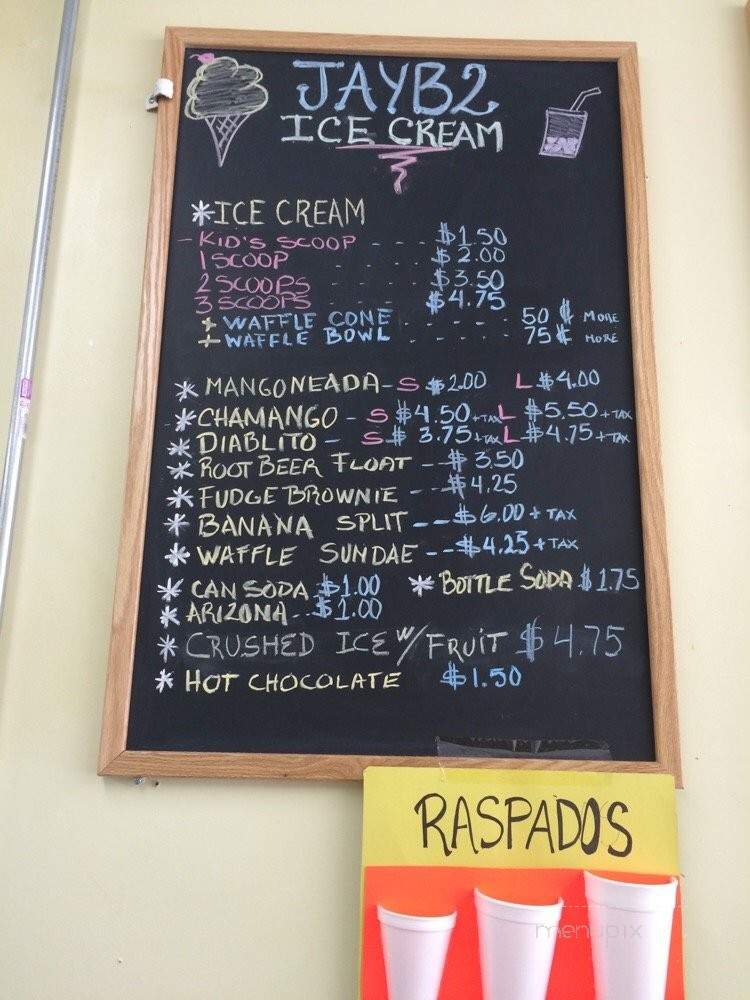 JAYB2
ICE CREAM
*ICE CREAM
- KID'S SCOOP - - - - $1.50
1 SCOOP - - - $2.00
2 SCOOPS - - - $3.50
3 SCOOPS - - - $4.75
+ WAFFLE CONE - - - - - 50¢ MORE
+ WAFFLE BOWL - - - - - 75¢ MORE
* MANGONEADA - S $2.00 L $4.00
* CHAMANGO - S $4.50+TAX L $5.50+TAX
* DIABLITO - S $3.75+TAX L $4.75+TAX
* ROOT BEER FLOAT -- $3.50
* FUDGE BROWNIE -- $4.25
* BANANA SPLIT -- $6.00 + TAX
* WAFFLE SUNDAE -- $4.25 + TAX
* CAN SODA $1.00 * BOTTLE SODA $1.75
* ARIZONA -- $1.00
* CRUSHED ICE W/ FRUIT $4.75
* HOT CHOCOLATE $1.50
RASPADOS
menupix